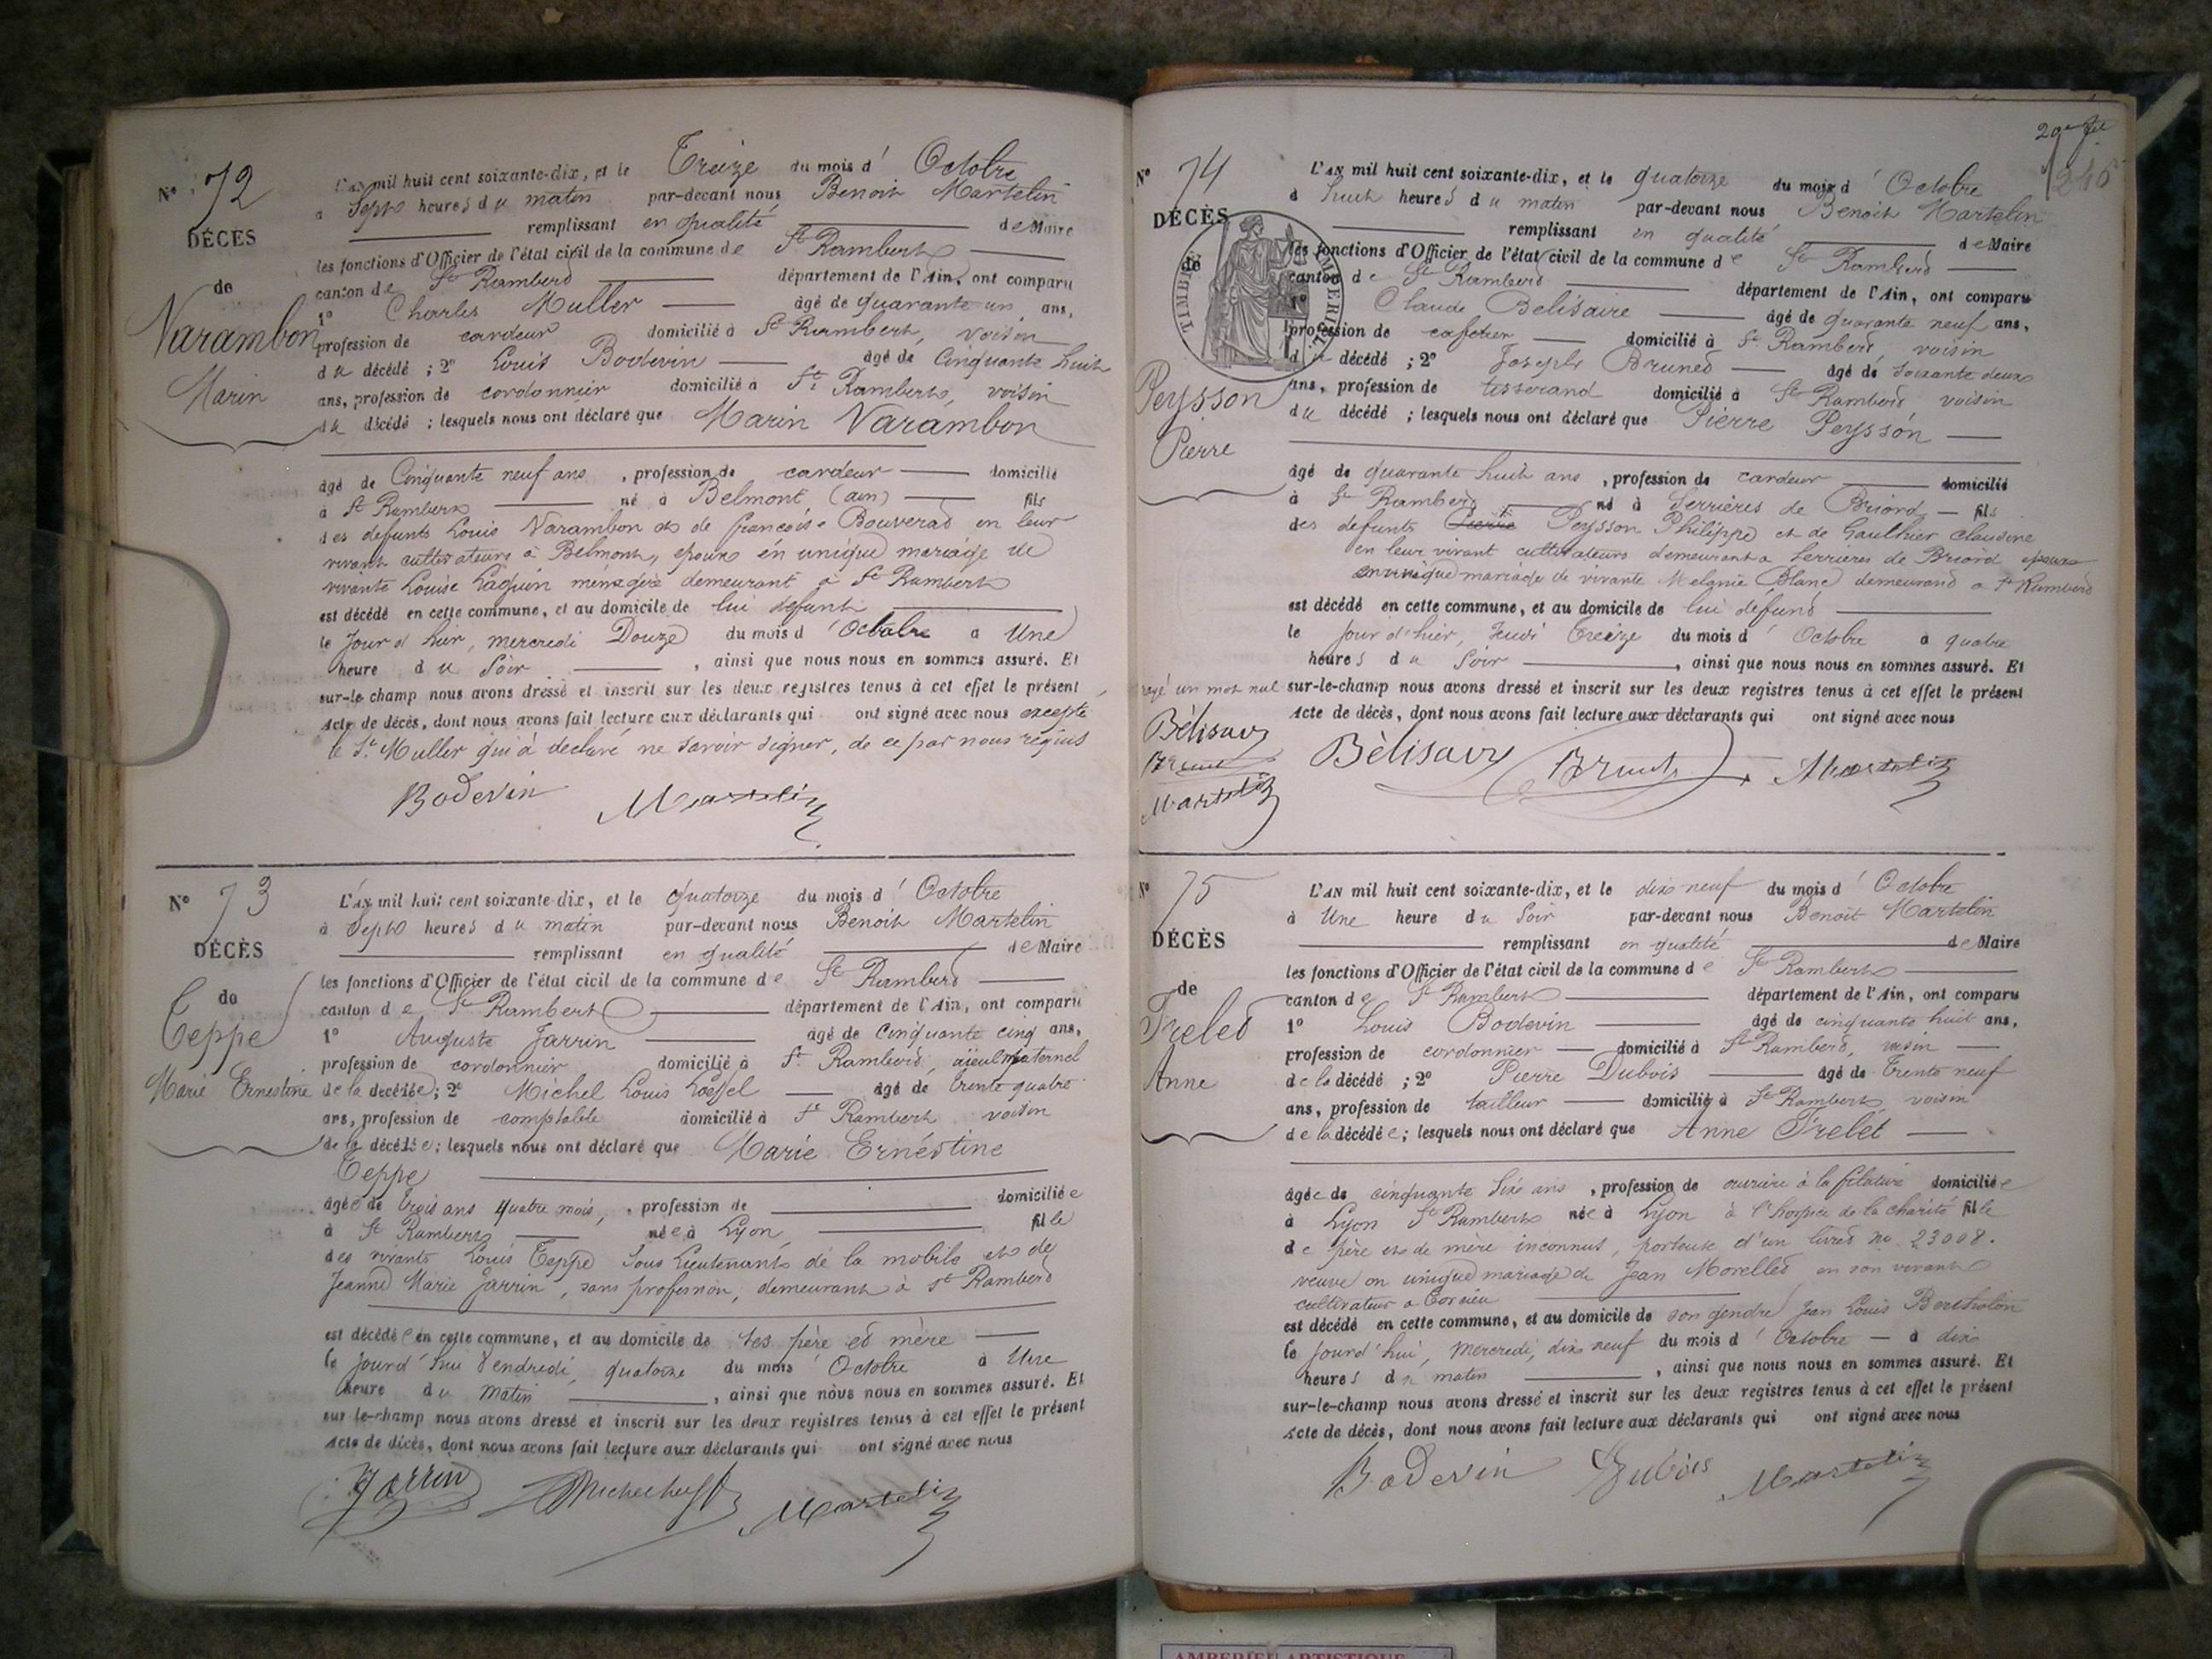 N° 72
DÉCÈS
de
Varambon
Marin
L'AN mil huit cent soixante-dix, et le Treize du mois d' Octobre
à Sept heures du matin par-devant nous Benoit Martelin
remplissant en qualité de Maire
les fonctions d'Officier de l'état civil de la commune de St Rambert
canton de St Rambert département de l'Ain, ont comparu
1° Charles Muller âgé de quarante un ans,
profession de cardeur domicilié à St Rambert, voisin
du décédé ; 2° Louis Bodevin âgé de Cinquante huit
ans, profession de cordonnier domicilié à St Rambert, voisin
du décédé ; lesquels nous ont déclaré que Marin Varambon
âgé de Cinquante neuf ans, profession de cardeur domicilié
à St Rambert né à Belmont (ain) fils
des defunts Louis Varambon et de françoise Bouverat en leur
vivant cultivateurs à Belmont, epoux en unique mariage de
vivante Louise Laguin ménagère demeurant à St Rambert
est décédé en cette commune, et au domicile de lui defunt
le Jour d'hier, mercredi Douze du mois d'Octobre à Une
heure du Soir, ainsi que nous nous en sommes assuré. Et
sur-le champ nous avons dressé et inscrit sur les deux registres tenus à cet effet le présent
Acte de décès, dont nous avons fait lecture aux déclarants qui ont signé avec nous excepté
le Sr Muller qui a declaré ne savoir signer, de ce par nous requis
Bodevin Martelin
N° 73
DÉCÈS
de
Teppe
Marie Ernestine
L'AN mil huit cent soixante-dix, et le quatorze du mois d' Octobre
à Sept heures du matin par-devant nous Benoit Martelin
remplissant en qualité de Maire
les fonctions d'Officier de l'état civil de la commune de St Rambert
canton de St Rambert département de l'Ain, ont comparu
1° Auguste Jarrin âgé de Cinquante cinq ans,
profession de cordonnier domicilié à St Rambert, ayeul maternel
de la décédée; 2° Michel Louis Lossel âgé de trente quatre
ans, profession de comptable domicilié à St Rambert voisin
de la décédée; lesquels nous ont déclaré que Marie Ernéstine
Teppe
âgée de trois ans quatre mois, profession de domiciliée
à St Rambert née à Lyon, fille
des vivants Louis Teppe Sous Lieutenant de la mobile et de
Jeanne Marie Jarrin, sans profession, demeurant à St Rambert
est décédée en cette commune, et au domicile de ses père et mère
le jourd'hui Vendredi, quatorze du mois Octobre à Une
heure du Matin, ainsi que nous nous en sommes assuré. Et
sur-le-champ nous avons dressé et inscrit sur les deux registres tenus à cet effet le présent
Acte de décès, dont nous avons fait lecture aux déclarants qui ont signé avec nous
Jarrin Martelin
29e fet
246
N° 74
DÉCÈS
de
TIMBRE IMPERIAL
Peysson
Pierre
L'AN mil huit cent soixante-dix, et le quatorze du mois d' Octobre
à huit heures du matin par-devant nous Benoit Martelin
remplissant en qualité de Maire
les fonctions d'Officier de l'état civil de la commune de St Rambert
canton de St Rambert département de l'Ain, ont comparu
1° Claude Belisaire âgé de quarante neuf ans,
profession de cafetier domicilié à St Rambert voisin
du décédé ; 2° Joseph Brunet âgé de Soixante deux
ans, profession de tisserand domicilié à St Rambert voisin
du décédé ; lesquels nous ont déclaré que Pierre Peysson
âgé de quarante huit ans, profession de cardeur domicilié
à St Rambert né à Serrières de Briord fils
des defunts Pierre Peysson Philippe et de Gaulthier Claudine
en leur vivant cultivateurs demeurant à Serrières de Briord epoux
en unique mariage de vivante Melanie Blanc demeurant a St Rambert
est décédé en cette commune, et au domicile de lui défunt
le jour d'hier, Jeudi Treize du mois d' Octobre à quatre
heures du Soir, ainsi que nous nous en sommes assuré. Et
rayé un mot nul
sur-le-champ nous avons dressé et inscrit sur les deux registres tenus à cet effet le présent
Acte de décès, dont nous avons fait lecture aux déclarants qui ont signé avec nous
Bélisaire
Brunet
Martelin
Bélisaire Brunet Martelin
N° 75
DÉCÈS
de
Frelet
Anne
L'AN mil huit cent soixante-dix, et le dix neuf du mois d' Octobre
à Une heure du Soir par-devant nous Benoit Martelin
remplissant en qualité de Maire
les fonctions d'Officier de l'état civil de la commune de St Rambert
canton de St Rambert département de l'Ain, ont comparu
1° Louis Bodevin âgé de cinquante huit ans,
profession de cordonnier domicilié à St Rambert, voisin
de la décédé ; 2° Pierre Dubois âgé de Trente neuf
ans, profession de tailleur domicilié à St Rambert voisin
de la décédée; lesquels nous ont déclaré que Anne Frelet
âgée de cinquante Six ans, profession de ouvrière à la filature domiciliée
à Lyon St Rambert née à Lyon à l'hospice de la charité fille
de père et de mère inconnus, porteuse d'un livret no 23008.
veuve en unique mariage de Jean Morellet en son vivant
cultivateur a Torcieu
est décédé en cette commune, et au domicile de son gendre Jean Louis Bertholon
le jourd'hui, Mercredi, dix neuf du mois d' Octobre à dix
heures du matin, ainsi que nous nous en sommes assuré. Et
sur-le-champ nous avons dressé et inscrit sur les deux registres tenus à cet effet le présent
Acte de décès, dont nous avons fait lecture aux déclarants qui ont signé avec nous
Bodevin Dubois Martelin
AMBERIEU ARTISTIQUE